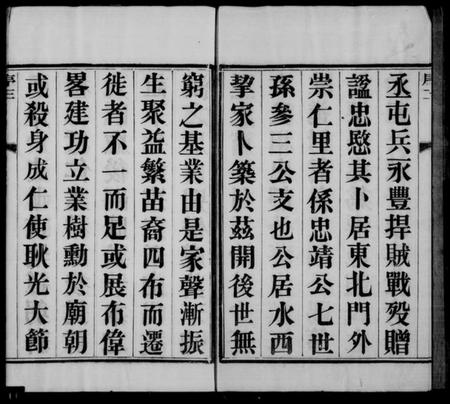 丞屯兵永豐捍賊戰歿贈
謚忠愍其卜居東北門外
崇仁里者係忠靖公七世
孫參三公支也公居水西
挈家卜築於茲開後世無
窮之基業由是家聲漸振
生聚益繁苗裔四布而遷
徙者不一而足或展布偉
畧建功立業樹勳於廟朝
或殺身成仁使耿光大節
序三